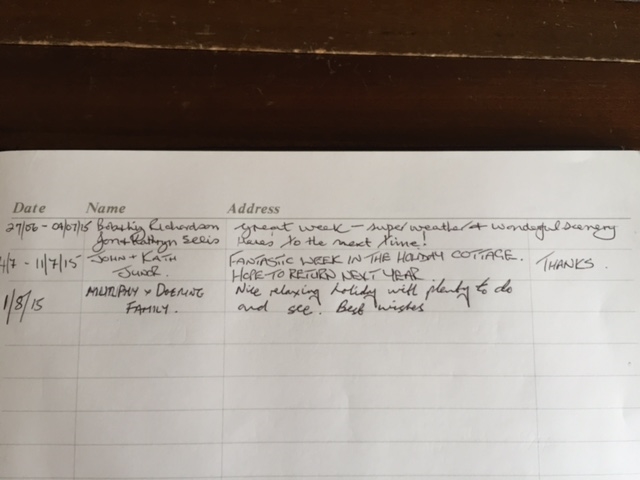 Date Name Address
27/06 - 04/07/15 Richardson Great week - super weather & wonderful scenery
Jon + Kathryn Here's to the next time!
4/7 - 11/7/15 JOHN + KATH FANTASTIC WEEK IN THE HOLIDAY COTTAGE. THANKS.
HOPE TO RETURN NEXT YEAR
1/8/15 MURPHY & Nice relaxing holiday with plenty to do
FAMILY. and see. Best wishes